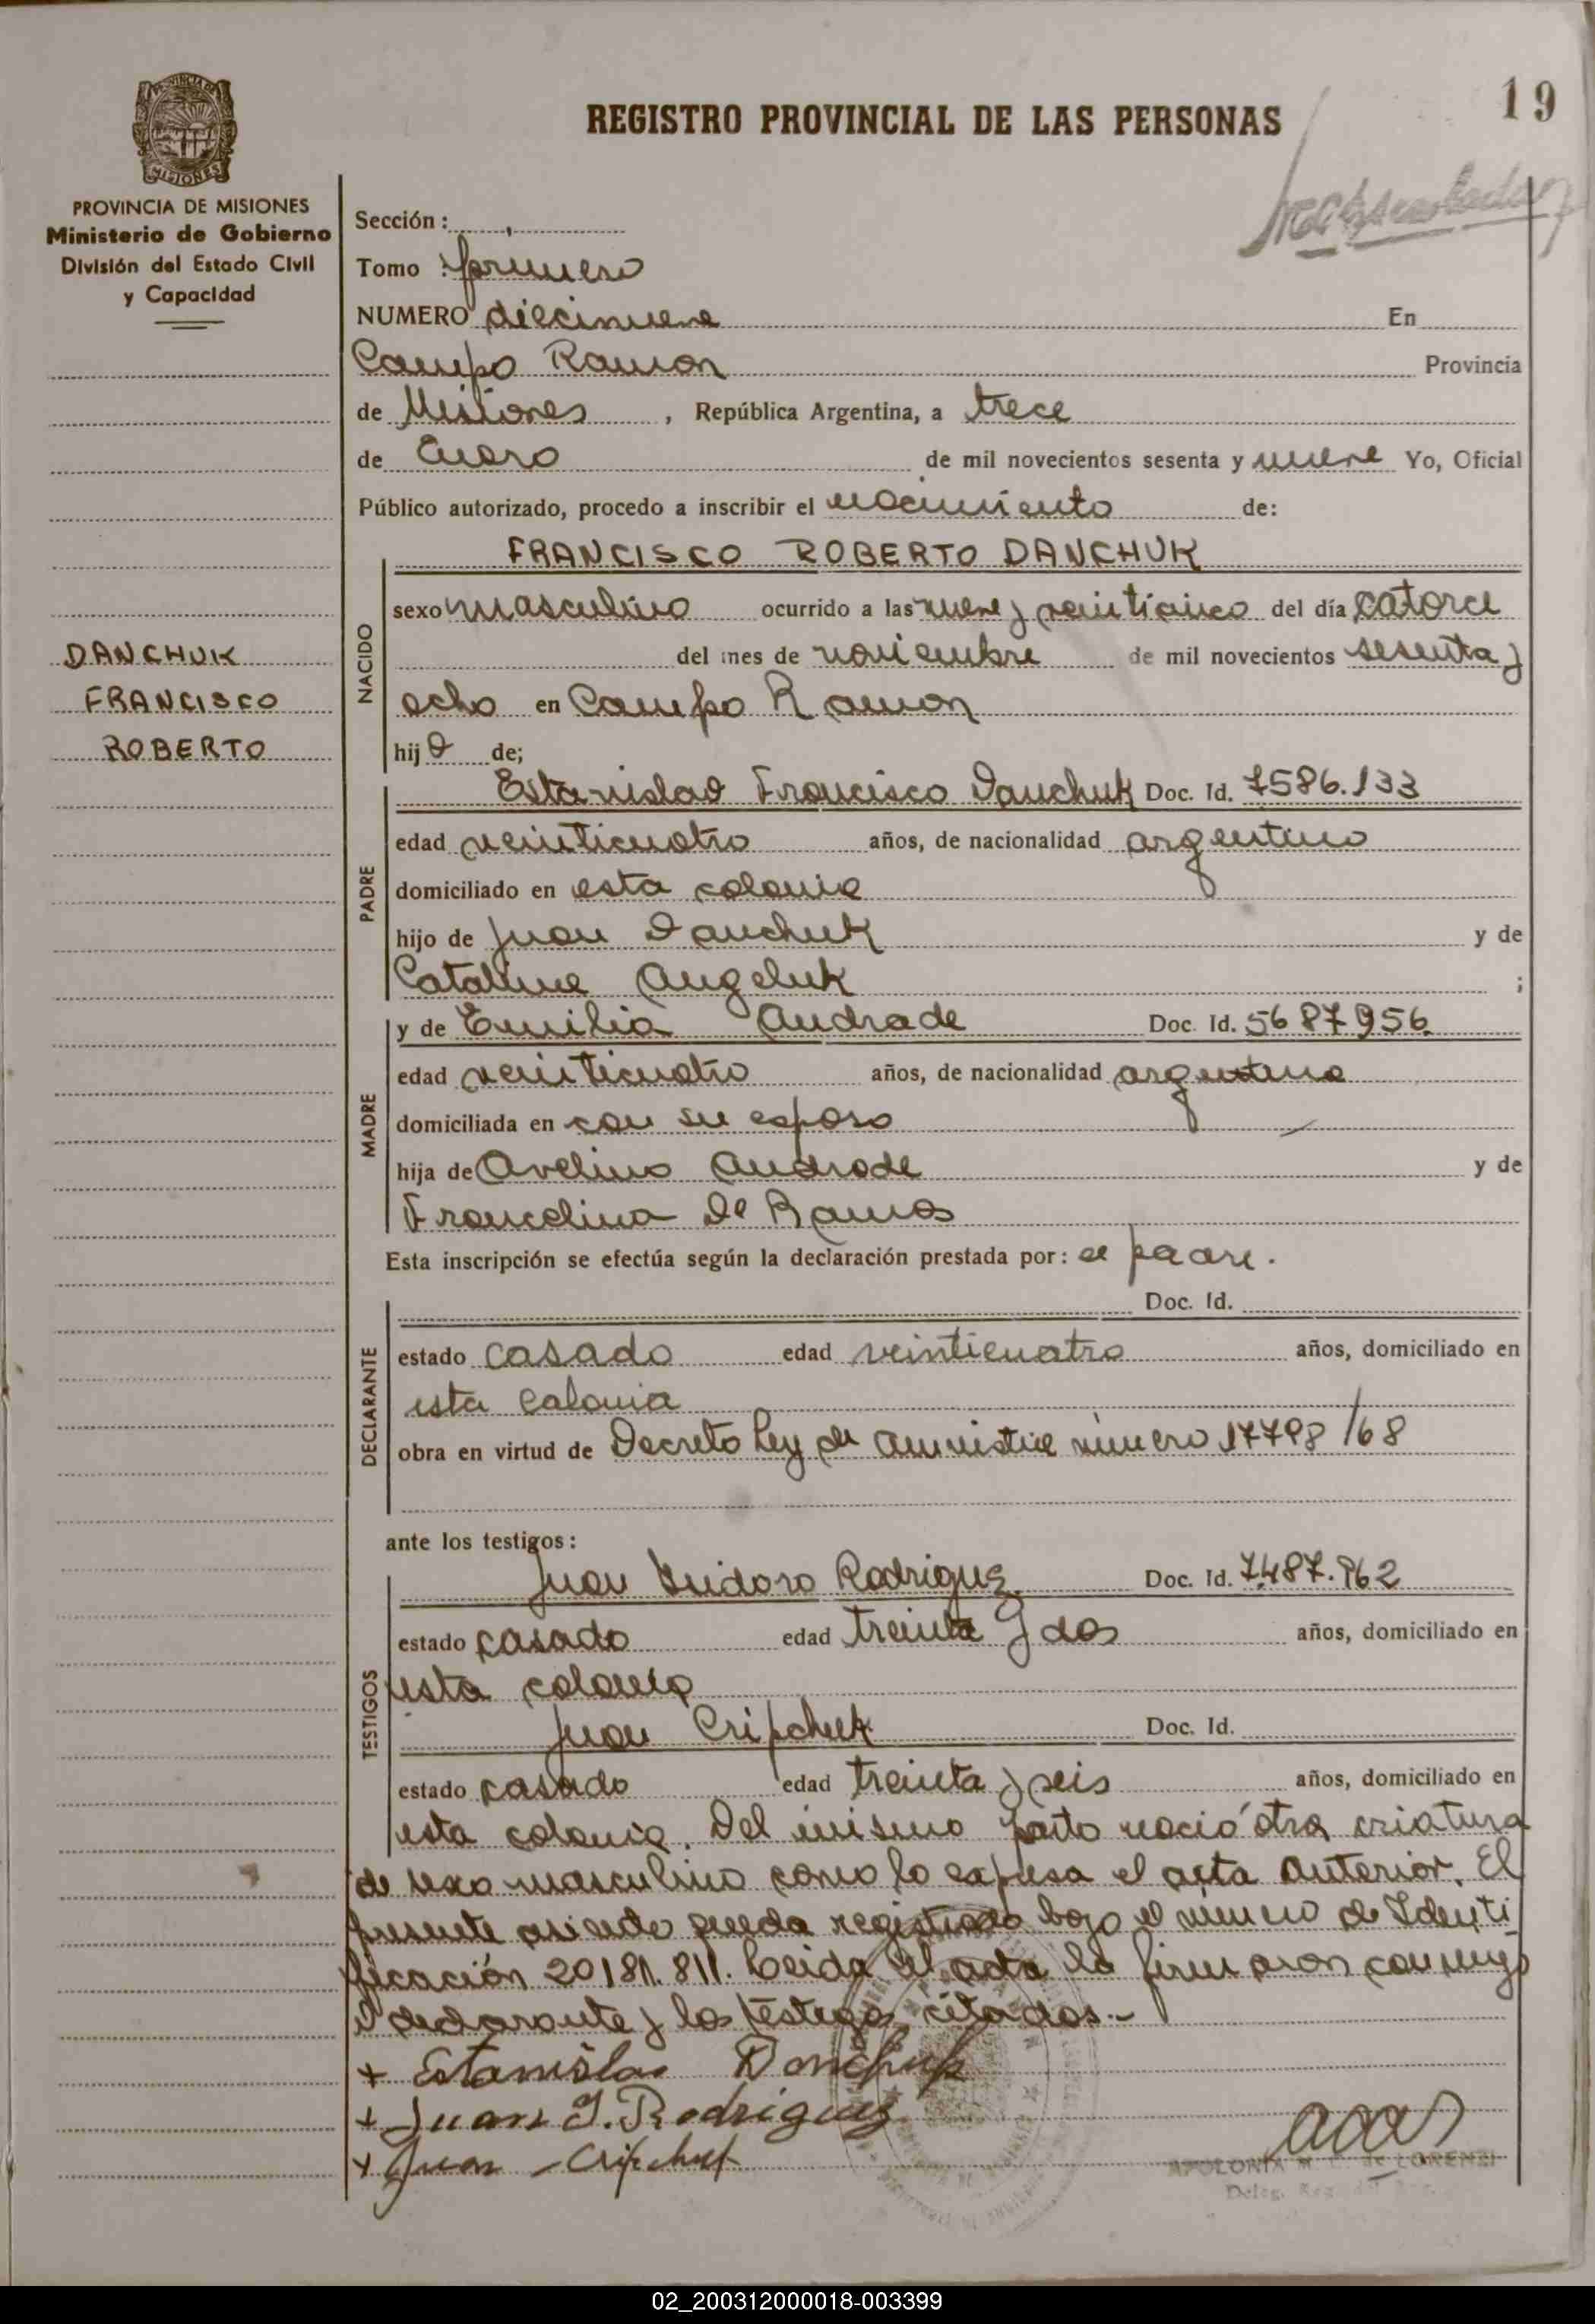 19
REGISTRO PROVINCIAL DE LAS PERSONAS
PROVINCIA DE MISIONES
Ministerio de Gobierno
División del Estado Civil
y Capacidad
Sección :
Tomo : primero
NUMERO diecinueve En
Campo Ramon Provincia
de Misiones , República Argentina, a trece
de Enero de mil novecientos sesenta y nueve Yo, Oficial
Público autorizado, procedo a inscribir el nacimiento de:
FRANCISCO ROBERTO DANCHUK
DANCHUK
FRANCISCO
ROBERTO
NACIDO
sexo masculino ocurrido a las nueve y veinticinco del día catorce
del mes de noviembre de mil novecientos sesenta y
ocho en Campo Ramon
hijo de;
PADRE
Estanislao Francisco Danchuk Doc. Id. 7586.133
edad veinticuatro años, de nacionalidad argentino
domiciliado en esta colonia
hijo de Juan Danchuk y de
Catalina Angeluk ;
MADRE
y de Emilia Andrade Doc. Id. 5687956
edad veinticuatro años, de nacionalidad argentina
domiciliada en con su esposo
hija de Avelino Andrade y de
Francelina de Ramos
Esta inscripción se efectúa según la declaración prestada por: el padre.
DECLARANTE
Doc. Id.
estado casado edad veinticuatro años, domiciliado en
esta colonia
obra en virtud de Decreto Ley de amnistia número 17798/68
ante los testigos:
TESTIGOS
Juan Isidoro Rodriguez Doc. Id. 7.487.962
estado casado edad treinta y dos años, domiciliado en
esta colonia
Juan Cripchuk Doc. Id.
estado casado edad treinta y seis años, domiciliado en
esta colonia. Del mismo parto nació otra criatura
de sexo masculino como lo expresa el acta anterior. El
presente asiento queda registrado bajo el número de Identi
ficación 20181.811. Leida el acta la firmaron conmigo
el declarante y los testigos citados.-
+ Estanislao Danchuk
+ Juan I. Rodriguez
+ Juan - Cripchuk
APOLONIA M. DE LORENZI
02_200312000018-003399